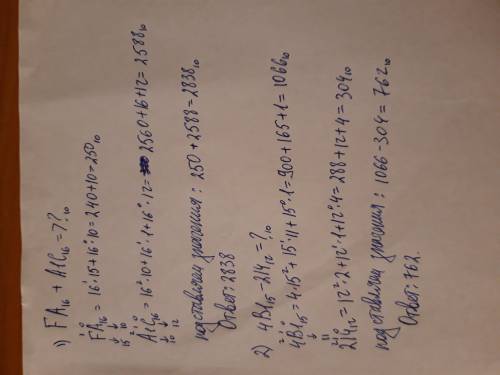 1) FA₁₆ + A1C₁₆ = ?₁₀
¹ ⁰
FA₁₆ = 16¹·15+16⁰·10=240+10=250₁₀
↓ ↓
15 10
² ¹ ⁰
A1C₁₆ = 16²·10+16¹·1+16⁰·12= 2560+16+12=2588₁₀
↓ ↓
10 12
подставляем значения: 250+2588=2838₁₀
Ответ: 2838
2) 4B1₁₅-214₁₂=?₁₀
² ¹ ⁰
4B1₁₅=4·15²+15¹·11+15⁰·1=900+165+1=1066₁₀
↓
11
² ¹ ⁰
214₁₂=12²·2+12¹·1+12⁰·4=288+12+4=304₁₀
подставляем значения: 1066-304=762₁₀
Ответ: 762.